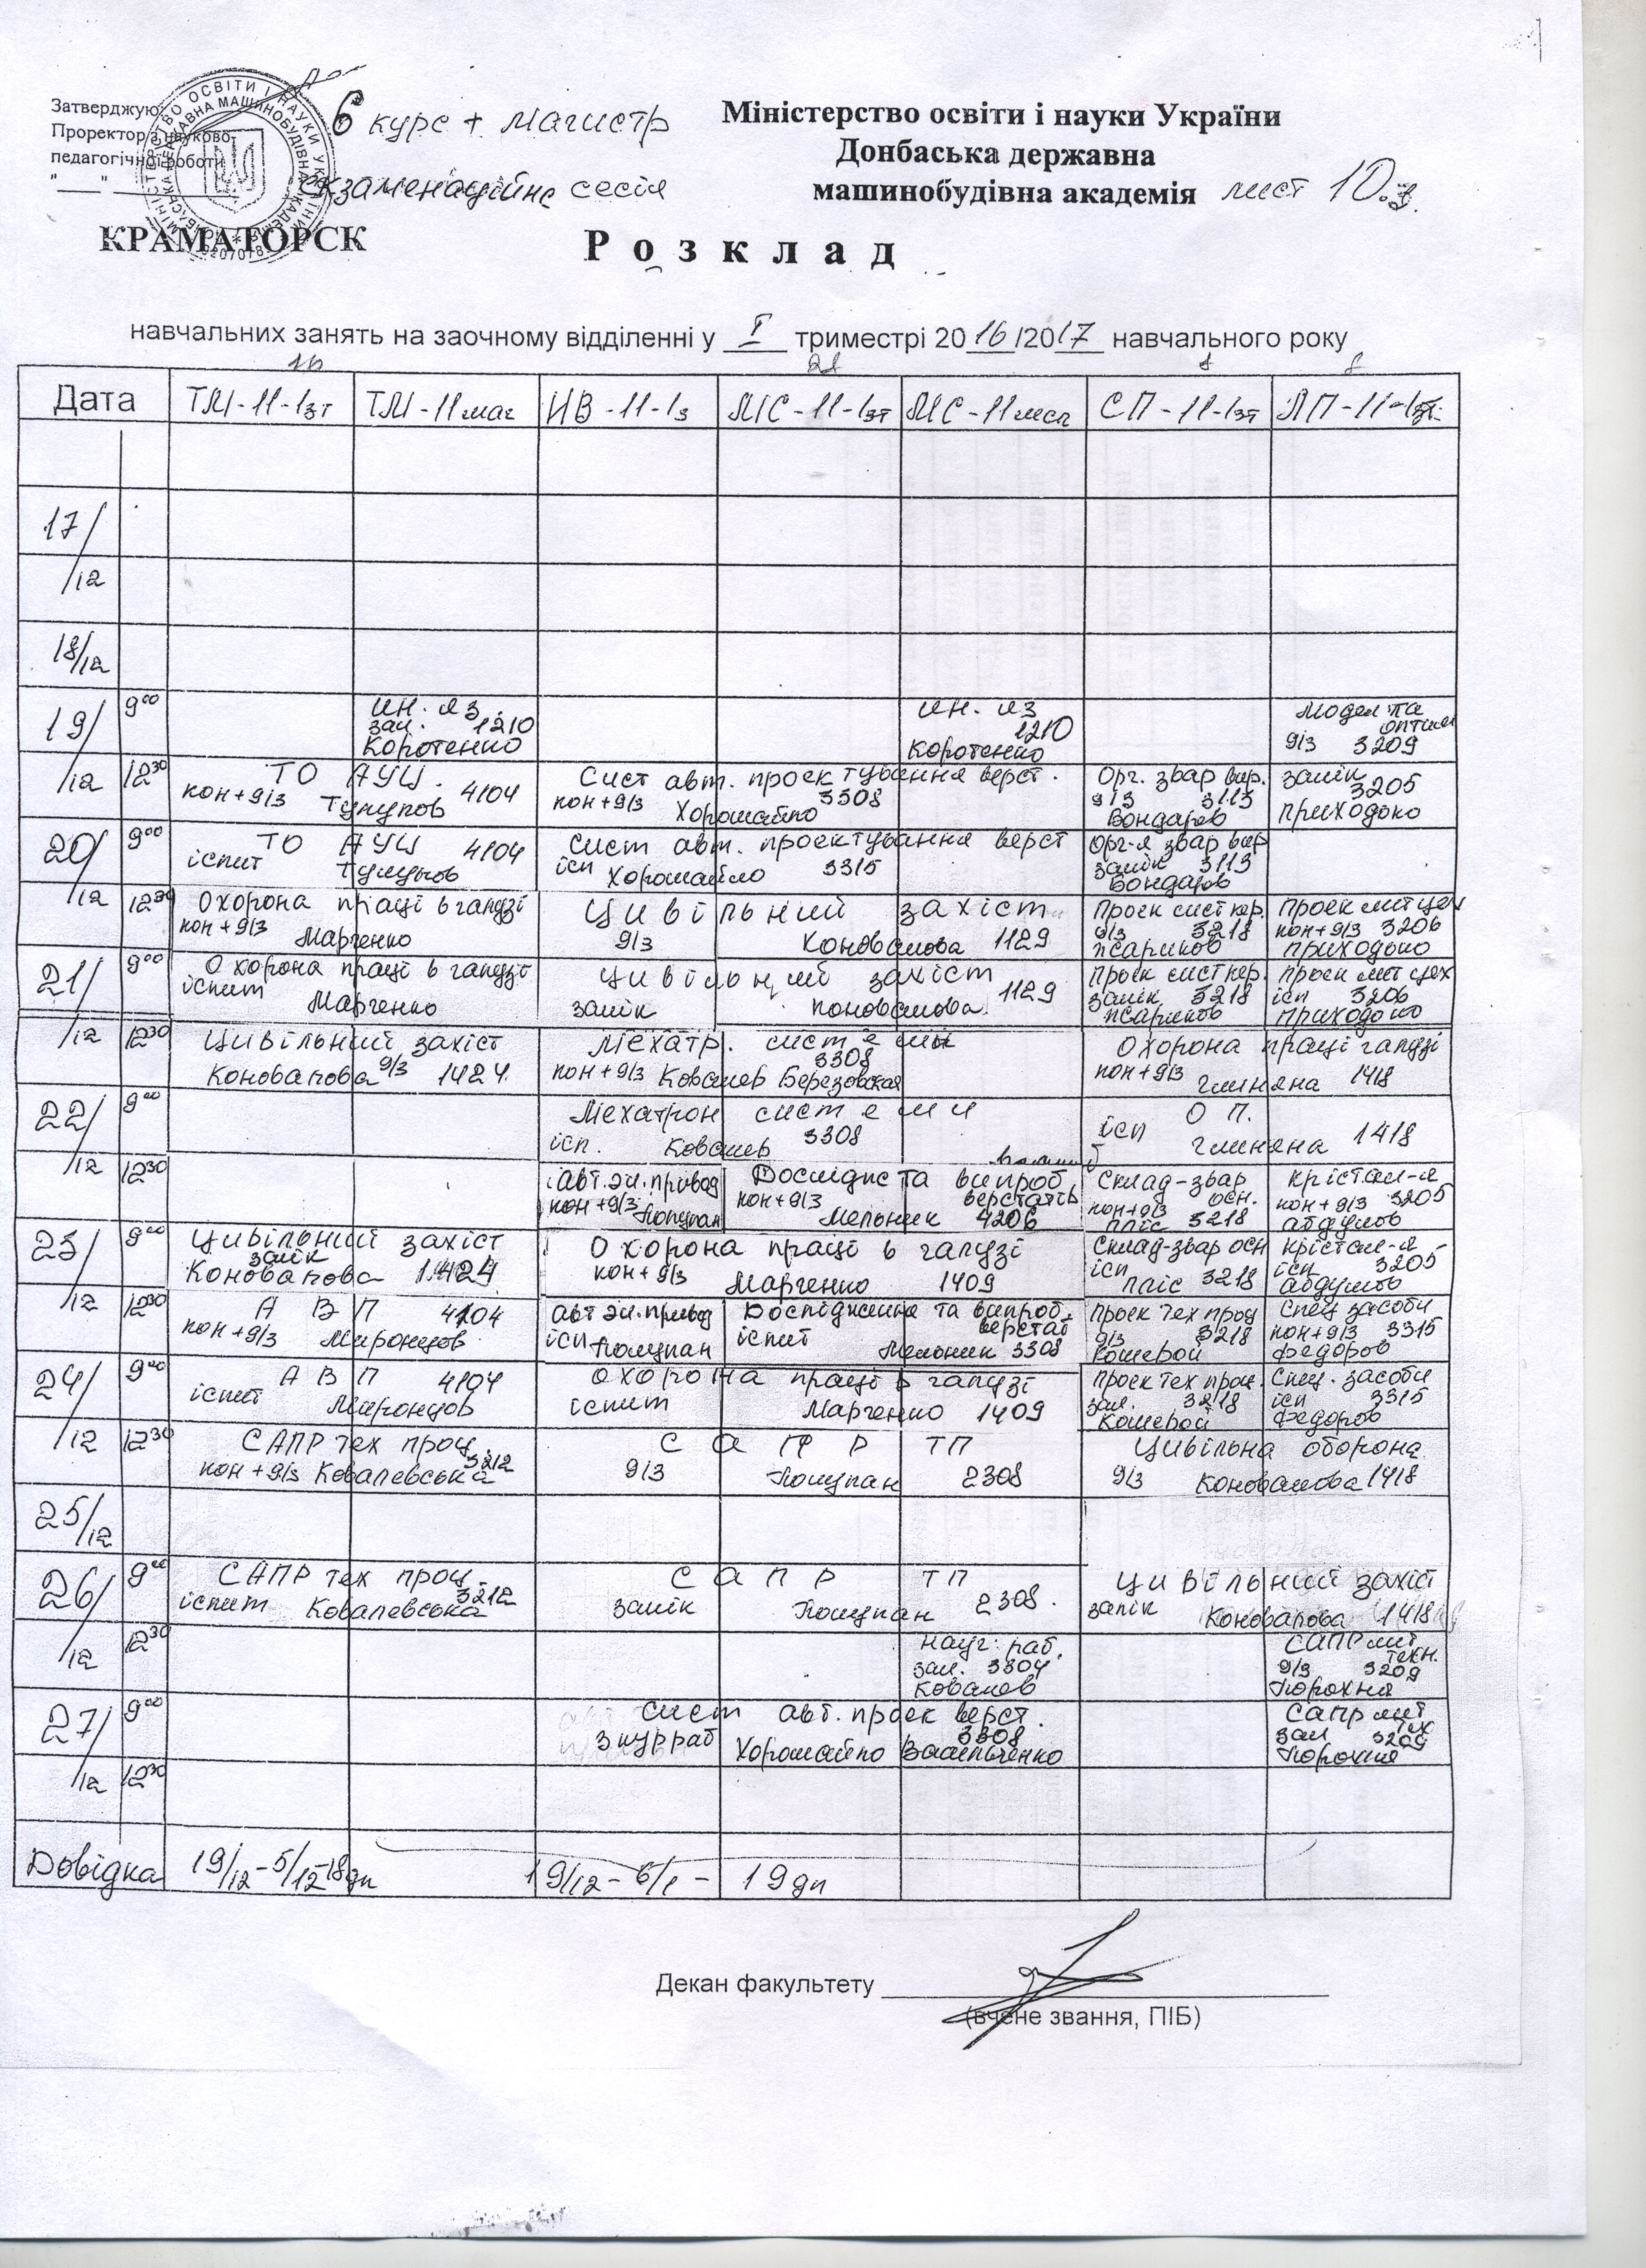 Затверджую:
Проректор з науково-
педагогічної роботи
"___" ___
6 курс + магистр
екзаменаційне сесія
КРАМАТОРСК
Міністерство освіти і науки України
Донбаська державна
машинобудівна академія лист 10.
Розклад
навчальних занять на заочному відділенні у I триместрі 2016/2017 навчального року
Дата ТМ-11-1зт ТМ-11маг ИВ-11-1з МС-11-1зт МС-11 СП-11-1зт ЛП-11-1зт
17/12
18/12
19/12 9 00
ин. яз.
зал. 1210
Коротенко
ин. яз
1210
Коротенко
Модел та
оптим
д/з 3209
12 30
ТО АУЦ.
кон+д/з Тулупов 4104
Сист авт. проектування верст.
кон+д/з Хорошайло 3308
Орг. звар вир.
д/з 3113
Бондарев
залік
3205
Приходько
20/12 9 00
ТО АУЦ 4104
іспит Тулупов
Сист авт. проектування верст
ісп Хорошайло 3315
Орг-я звар вир
залік 3113
Бондарев
12 30
Охорона праці в галузі
кон+д/з Марченко
Цивільний захіст
д/з Коновалова 1129
Проек сист кер.
д/з 3218
Псариков
Проек лит цех
кон+д/з 3206
Приходько
21/12 9 00
Охорона праці в галузі
іспит Марченко
Цивільний захіст
залік Коновалова 1129
Проек сист кер.
залік 3218
Псариков
Проек лит цех
ісп 3206
Приходько
12 30
Цивільний захіст
Коновалова д/з 1424.
Мехатр. системи
3308
кон+д/з Ковалев Березовская
Охорона праці галузі
кон+д/з Глиняна 1418
22/12 9 00
Мехатрон системи
ісп. Ковалев 3308
О П.
ісп Глиняна 1418
12 30
Авт.эл.привод
кон+д/з Полупан
Дослідж та випроб
верстатів
кон+д/з Мельник 4206
Склад-звар
осн.
кон+д/з
Пліс 3218
Крістал-я
кон+д/з 3205
Абдулов
23/12 9 00
Цивільний захіст
залік
Коновалова 1424
Охорона праці в галузі
кон+д/з Марченко 1409
Склад-звар осн
ісп
Пліс 3218
Крістал-я
ісп. 3205
Абдулов
12 30
А В П 4104
кон+д/з Миронцов
Авт эл.привод
ісп Полупан
Дослідження та випроб.
верстат
іспит Мельник 3308
Проек тех проц
д/з 3218
Кошевой
Спец засоби
кон+д/з 3315
Федоров
24/12 9 00
А В П 4104
іспит Миронцов
Охорона праці в галузі
іспит Марченко 1409
Проек тех проц.
зал. 3218
Кошевой
Спец. засоби
ісп 3315
Федоров
12 30
САПР тех проц.
кон+д/з Ковалевська 3212
С А П Р ТП
д/з Полупан 2308
Цивільна оборона
д/з Коновалова 1418
25/12
26/12 9 00
САПР тех проц.
іспит Ковалевська 3212
С А П Р ТП
залік Полупан 2308.
Цивільний захіст
залік Коновалова 1418
12 30
Науч. раб.
зал. 3304
Ковалев
САПР лит
техн.
д/з 3209
Порохня
27/12 9 00
Сист авт. проек верст.
3308
з кур раб Хорошайло
САПР лит
тех
зал 3209
Порохня
12 30
Довідка 19/12-5/12 18дн 19/12-6/1- 19дн
Декан факультету
(вчене звання, ПІБ)